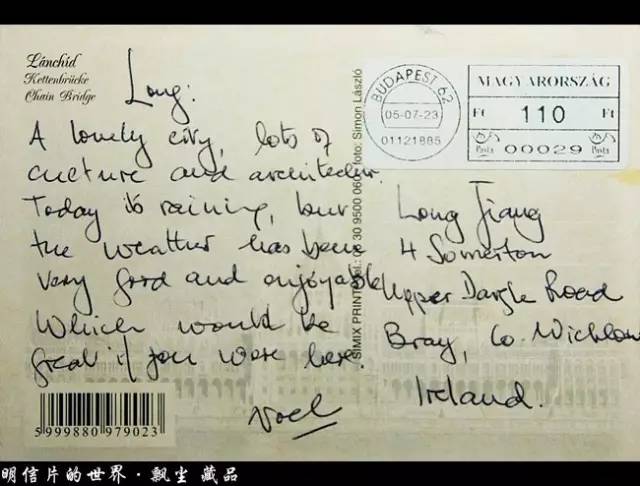 Lánchíd
Kettenbrücke
Chain Bridge
Long:
A lovely city, lots of
culture and architectur.
Today it is raining, but
the weather has been
very good and enjoyable
Which would be
great if you were here.
Noel
5 999880 979023
SIMIX PRINT Tel.: 06 30 9500 060 foto: Simon László
BUDAPEST 62
05-07-23
01121885
MAGYARORSZÁG
Ft 110 Ft
Posta 00029 Posta
Long Jiang
4 Somerton
Upper Dargle Road
Bray, Co. Wicklow
Ireland.
明信片的世界·飘尘 藏品